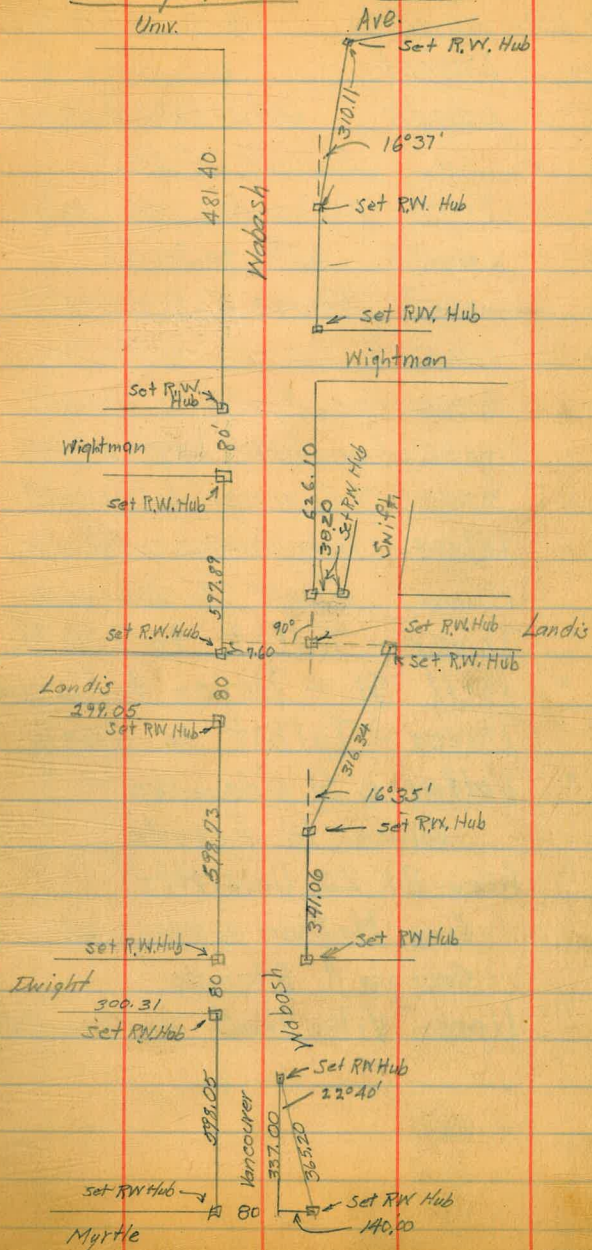 Univ.
Ave.
set R.W. Hub
310.11
16°37'
481.40
Wabash
set R.W. Hub
set R.W. Hub
Wightman
set R.W.
Hub
80'
Wightman
set R.W. Hub
626.10
38.20
Set R.W. Hub
Swift
597.89
90°
set R.W. Hub
Landis
set R.W. Hub
7.60
set R.W. Hub
Landis
80
299.05
set RW Hub
316.34
16°35'
set R.W. Hub
598.73
341.06
set R.W. Hub
set RW Hub
Dwight
80
Wabash
300.31
set RW. Hub
Set RW Hub
22°40'
598.05
Vancouver
337.00
365.20
set RW Hub
80
set RW Hub
140.00
Myrtle